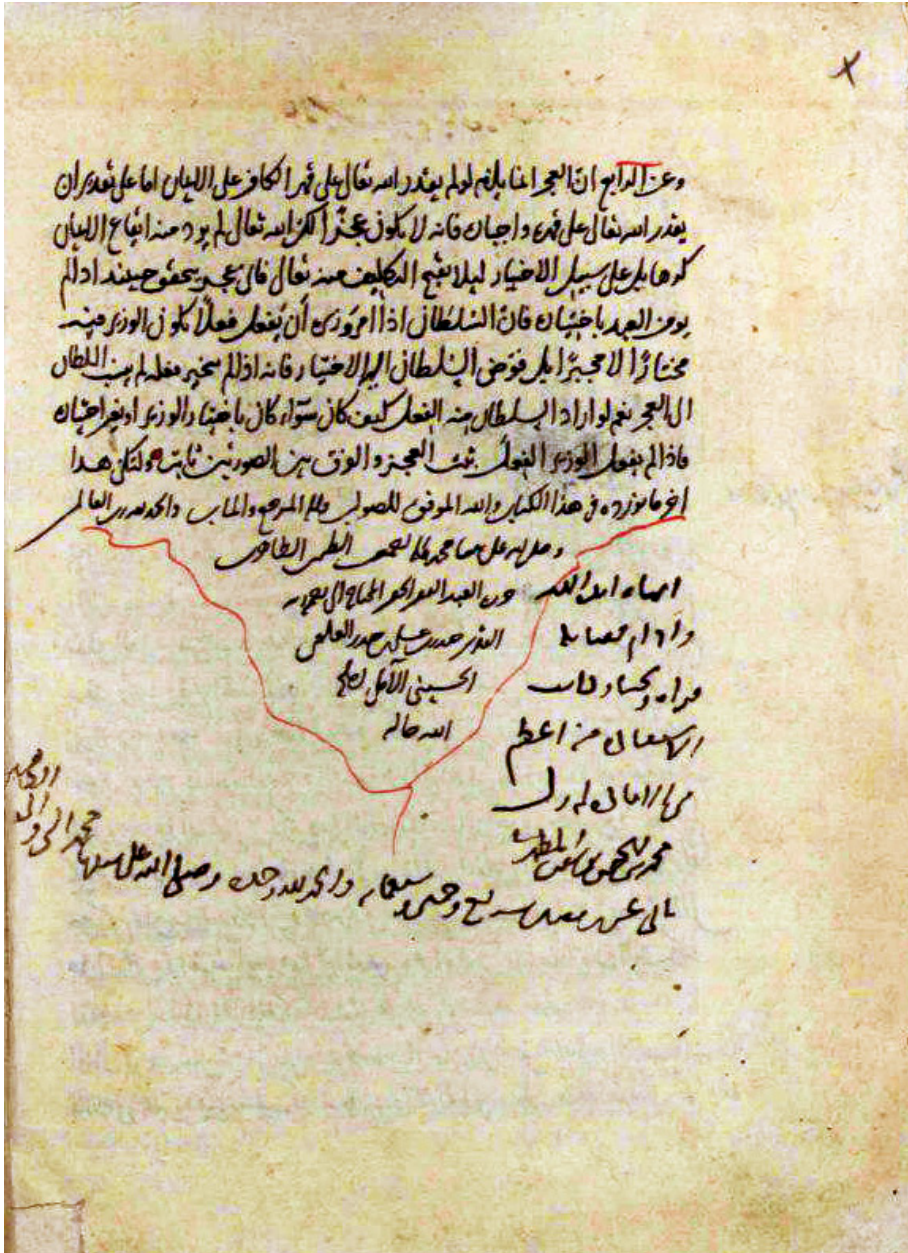 وعن الرابع ان العجز انما يلزم لو لم يقدر الله تعالى على قهر الكافر على الايمان اما على تقدير ان
يقدر الله تعالى على قهره واجباره فانه لا يكون عجزًا لكن الله تعالى لم يرد منه ايقاع الايمان
كرها بل على سبيل الاختيار ليلا يقبح التكليف منه تعالى فاى عجز يتحقق حينئذ اذا لم
يومن العبد باختياره فان السلطان اذا امر وزيره أن يفعل فعلاً يكون الوزير فيه
مختارًا لا مجبرًا بل فوّض السلطان اليه الاختيار فانه اذا لم يتخير فعله لم ينسب السلطان
الى العجز نعم لو اراد السلطان منه الفعل كيف كان سوآء كان باختيار الوزير او بغير اختياره
فاذا لم يفعل الوزير الفعل ثبت العجز والفرق بين الصورتين ثابت ولتكن هذا
اخر ما نورده فى هذا الكتاب والله الموفق للصواب واليه المرجع والماب والحمد لله رب العالمين
وصلى الله على محمد الطاهرين
العبد الفقير
حيدر بن على بن حيدر
الحسينى الآملى اصلح
الله حاله
انهاه ايده الله
وادام
قراءة
من اعظم
محمد بن الحسن بن المطهر
وخمسين وسبعمائه والحمد لله وحده وصلى الله على سيدنا
محمد النبى واله